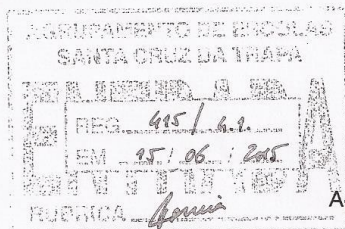 AGRUPAMENTO DE ESCOLAS
SANTA CRUZ DA TRAPA
ENTRADA
REG. 415 / 4.1.
EM 15 / 06 / 2015
RUBRICA
A